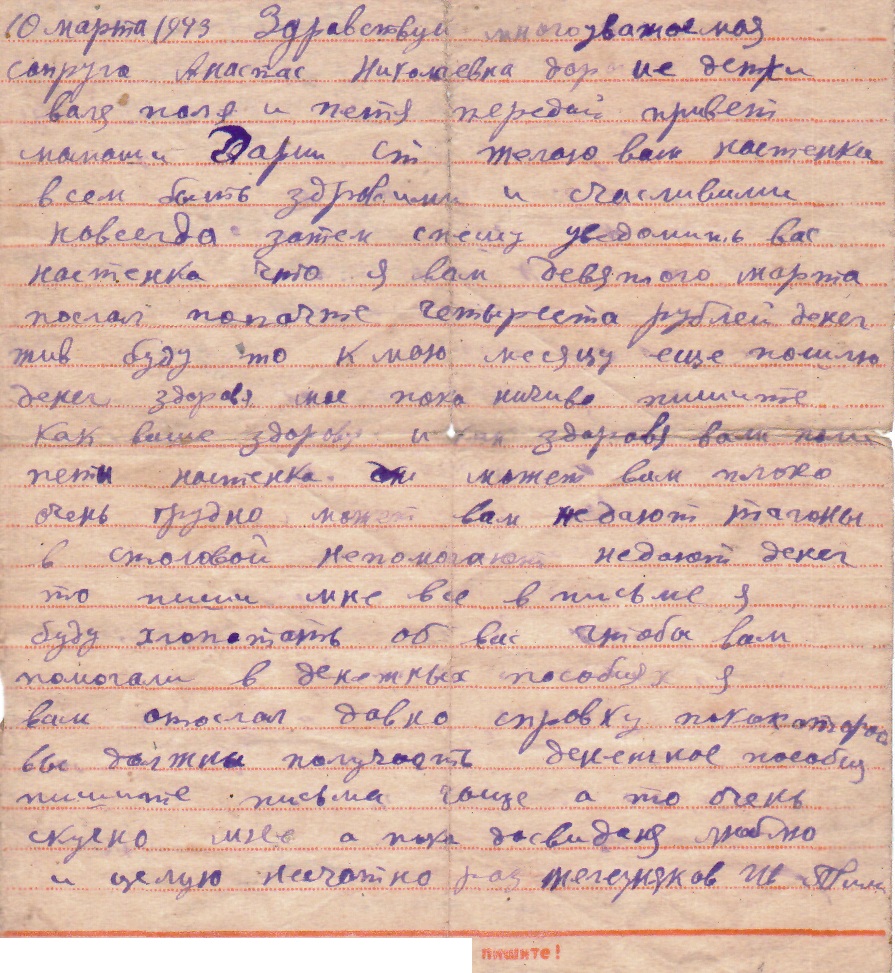 10 марта 1943 Здравствуй многоуважаемая
супруга Анастас Николаевна дорогие детки
валя поля и петя передай привет
мамаши Дарии Ст желаю вам настенка
всем быть здоровыми и счасливыми
навсегда затем спешу уведомить вас
настенка что я вам девятого марта
послал попочте четыреста рублей денег
жив буду то к маю месяцу еще пошлю
денег здоровя мое пока ничиво пишите
как ваше здоровя и как здоровя вали поли
пети настенка может вам плохо
очень трудно может вам недают талоны
в столовой непомогают недают денег
то пиши мне все в письме я
буду хлопотать об вас чтобы вам
помогали в денежных пособиях я
вам отослал давно спровку покакоторой
вы должны получать денежное пособия
пишите письма чаще а то очень
скучно мне а пока досвиданя люблю
и целую несчотно раз
пишите!